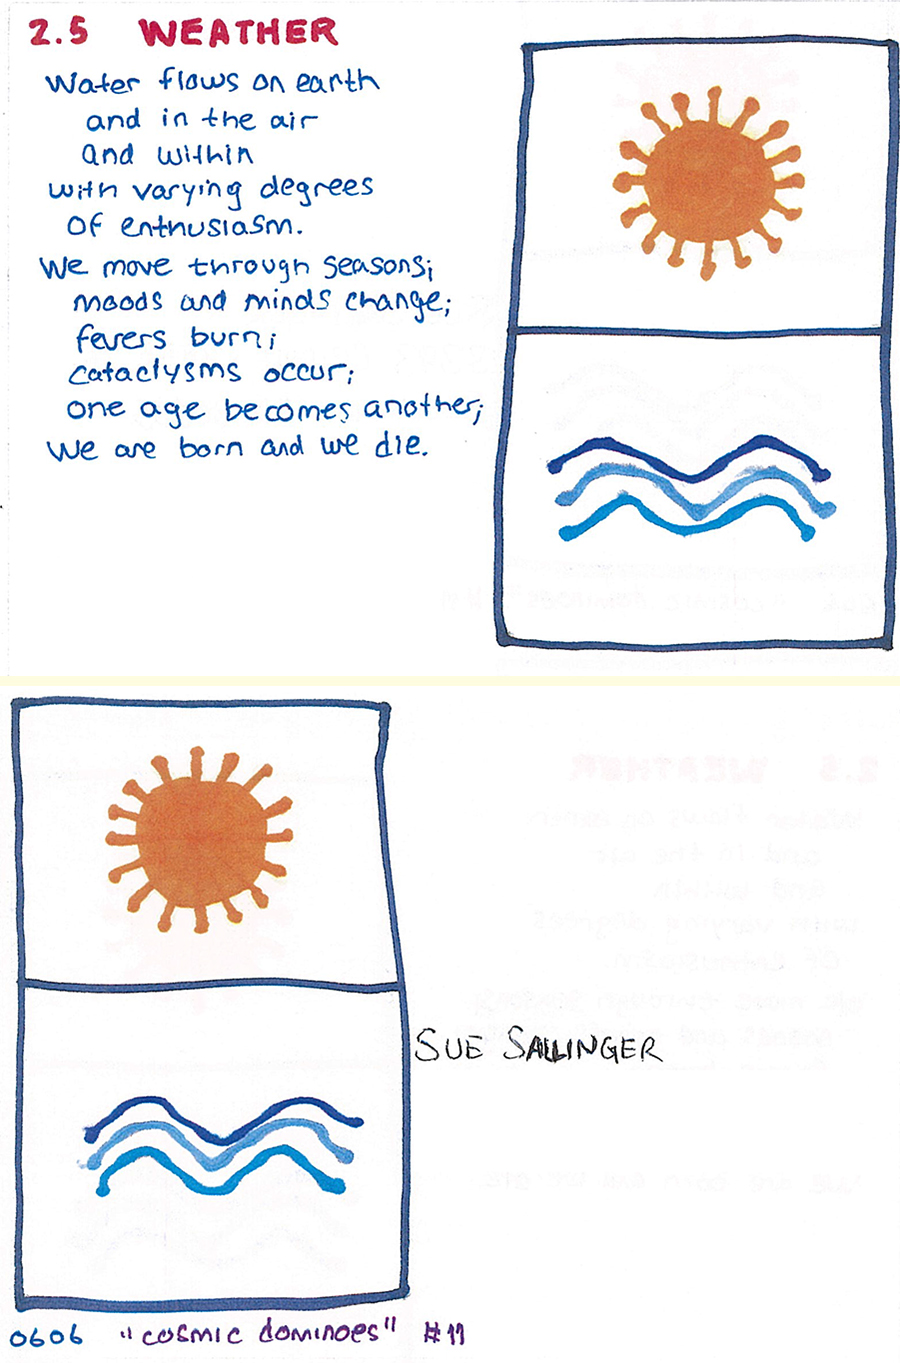 2.5 WEATHER
Water flows on earth
and in the air
and within
with varying degrees
of enthusiasm.
We move through seasons;
moods and minds change;
fevers burn;
cataclysms occur;
one age becomes another;
We are born and we die.
SUE SALLINGER
0606 "cosmic dominoes" #11